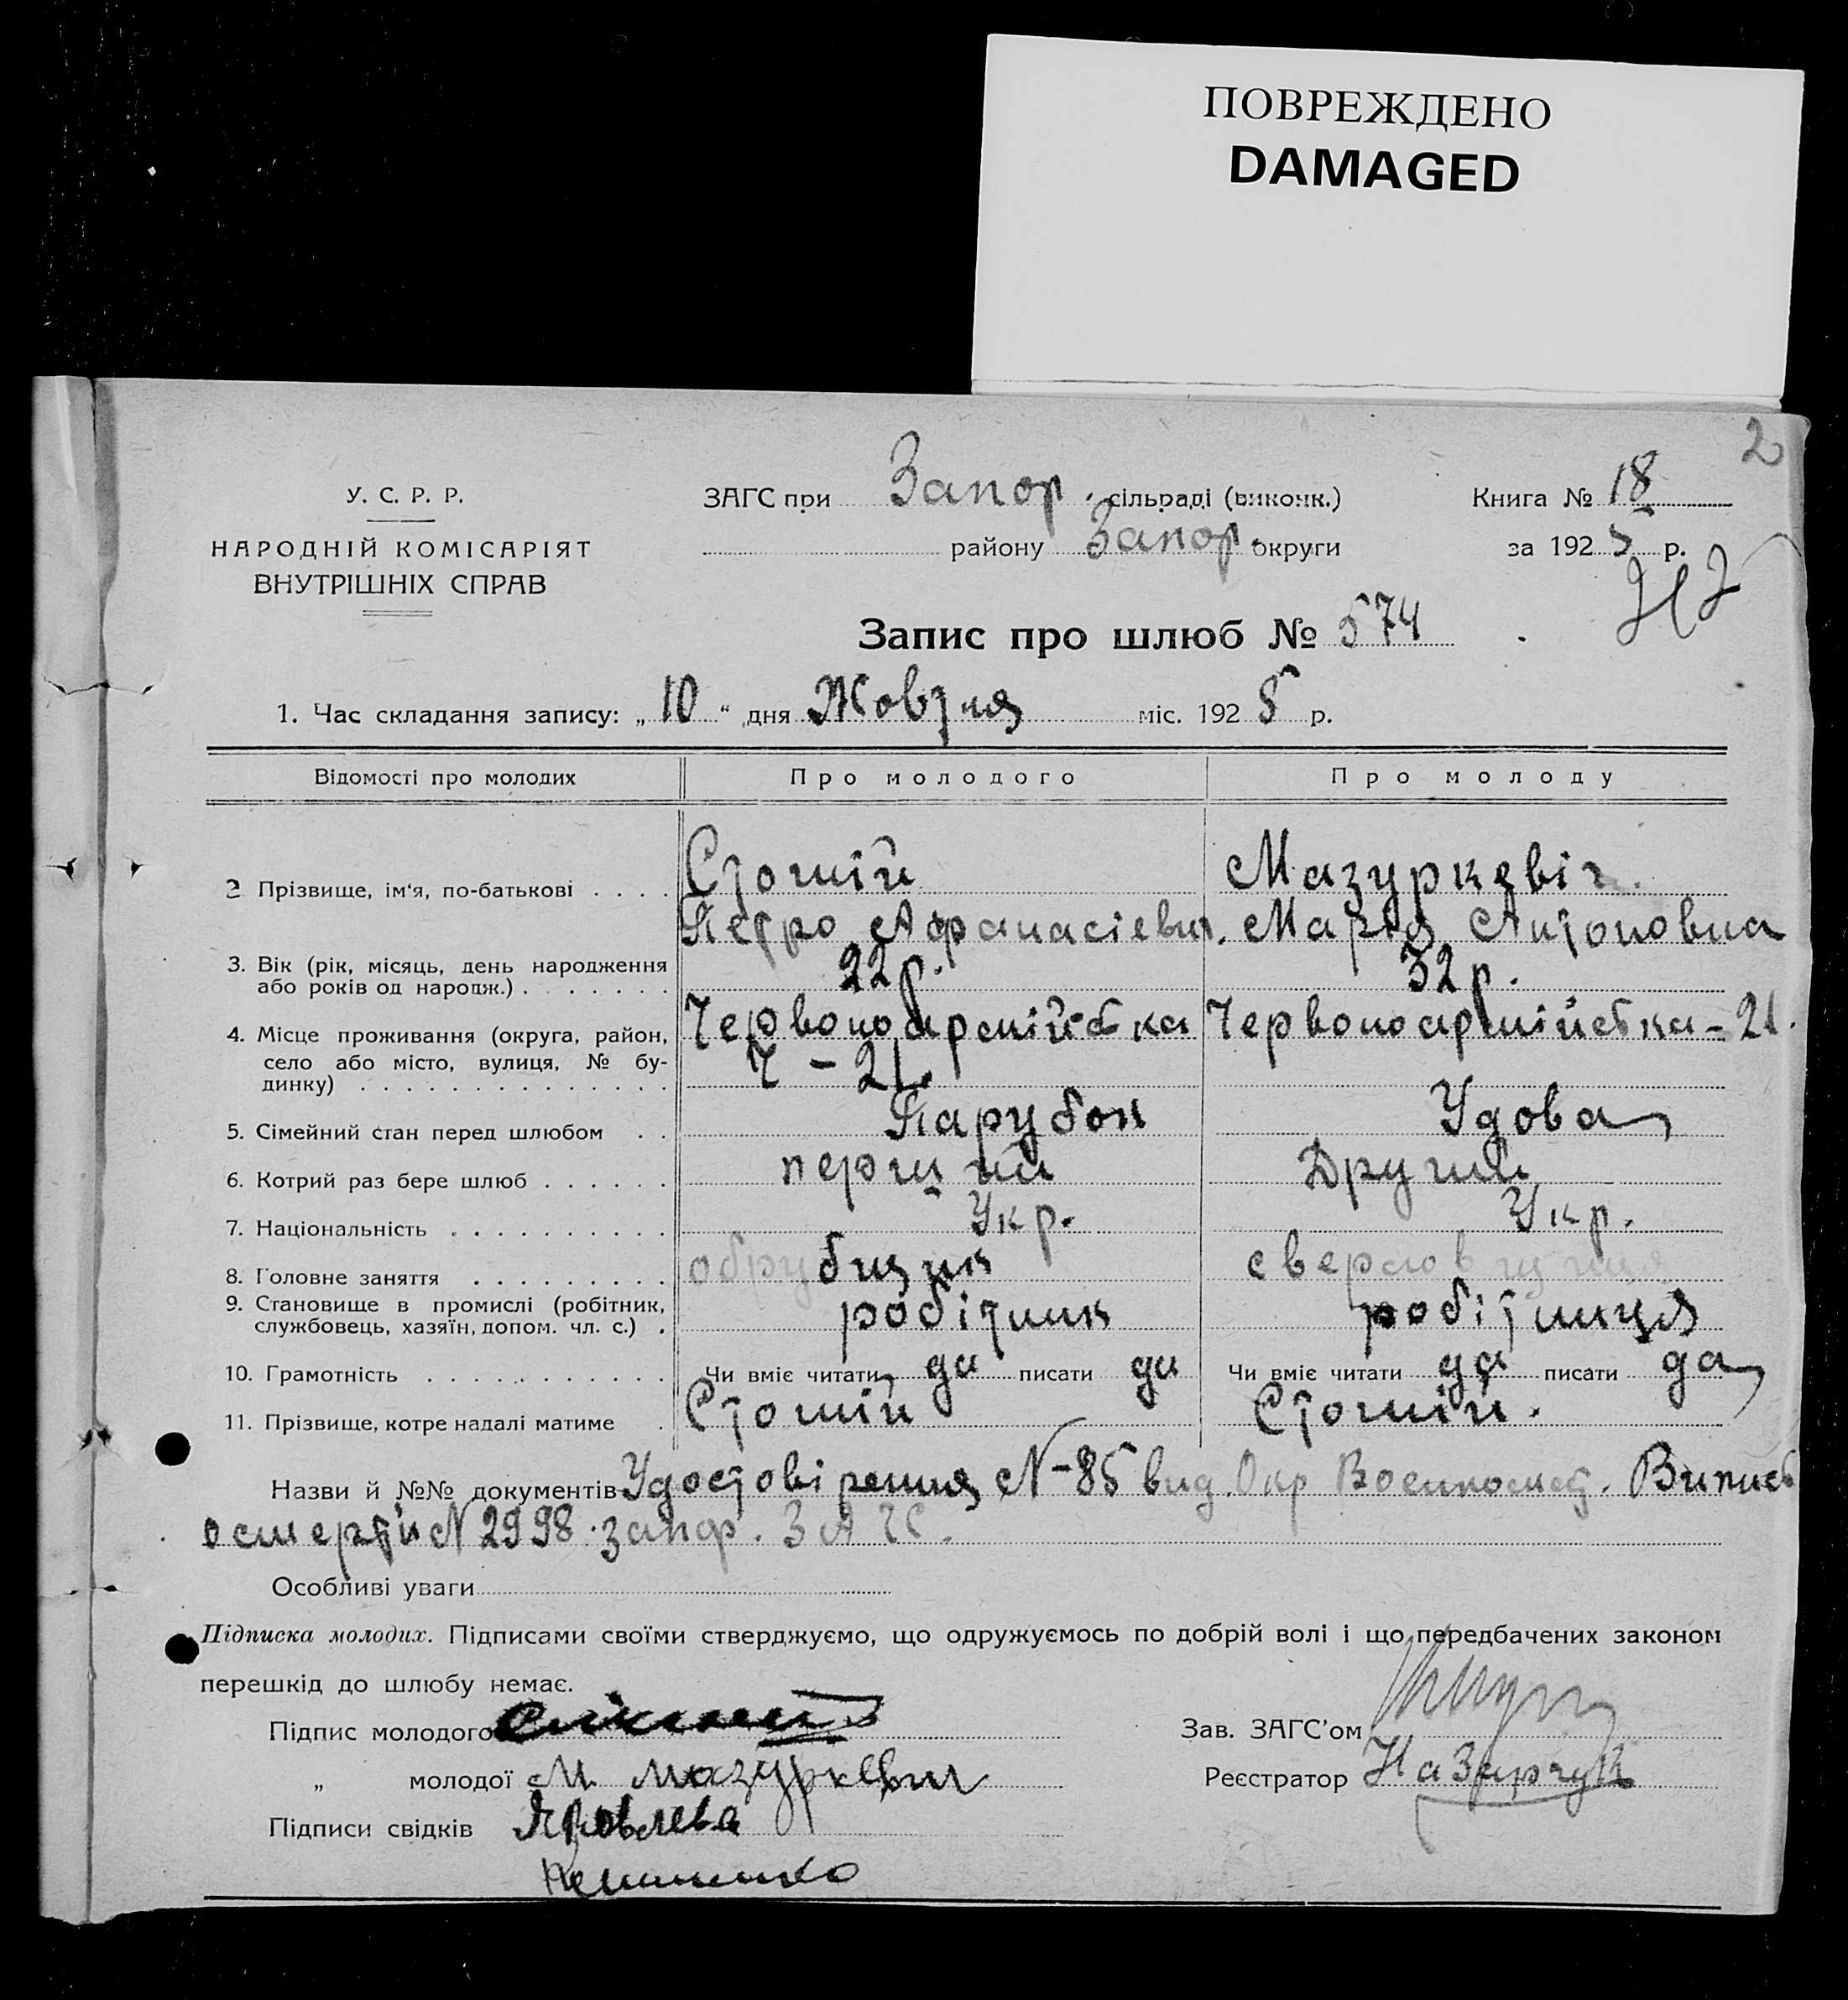 ПОВРЕЖДЕНО
DAMAGED
2
У. С. Р. Р.
НАРОДНІЙ КОМІСАРІЯТ
ВНУТРІШНІХ СПРАВ
ЗАГС при Запор. сільраді (виконк.)
району Запор. округи
Книга № 18
за 1925 р.
Запис про шлюб № 574
1. Час складання запису: „10“ дня Жовтня міс. 1925 р.
Відомості про молодих Про молодого Про молоду
2 Прізвище, ім'я, по-батькові . . . . Стогній Мазуркевіч.
Петро Афанасієвич. Марія Антоновна
3. Вік (рік, місяць, день народження або років од народж.) . . . . . . . 22 р. 32 р.
4. Місце проживання (округа, район, село або місто, вулиця, № будинку) . . . . . . . . . . . . . . Червоноармійська Ч - 21. Червоноармійська - 21.
5. Сімейний стан перед шлюбом . . Парубок Удова
6. Котрий раз бере шлюб . . . . . . перший Другий
7. Національність . . . . . . . . . . Укр. Укр.
8. Головне заняття . . . . . . . . . обрубщик сверловщиця
9. Становище в промислі (робітник, службовець, хазяїн, допом. чл. с.) . робітник робітниця
10. Грамотність . . . . . . . . . . . Чи вміє читати да писати да Чи вміє читати да писати да
11. Прізвище, котре надалі матиме . Стогній Стогній.
Назви й №№ документів Удостовірення N-85 вид. Окр Военкомат. Випись
о смерти N 2998. запор. ЗАГС.
Особливі уваги
Підписка молодих. Підписами своїми стверджуємо, що одружуємось по добрій волі і що передбачених законом
перешкід до шлюбу немає.
Підпис молодого
Зав. ЗАГС'ом
„ молодої М. Мазуркевич
Реєстратор Назарчук
Підписи свідків Яковлева